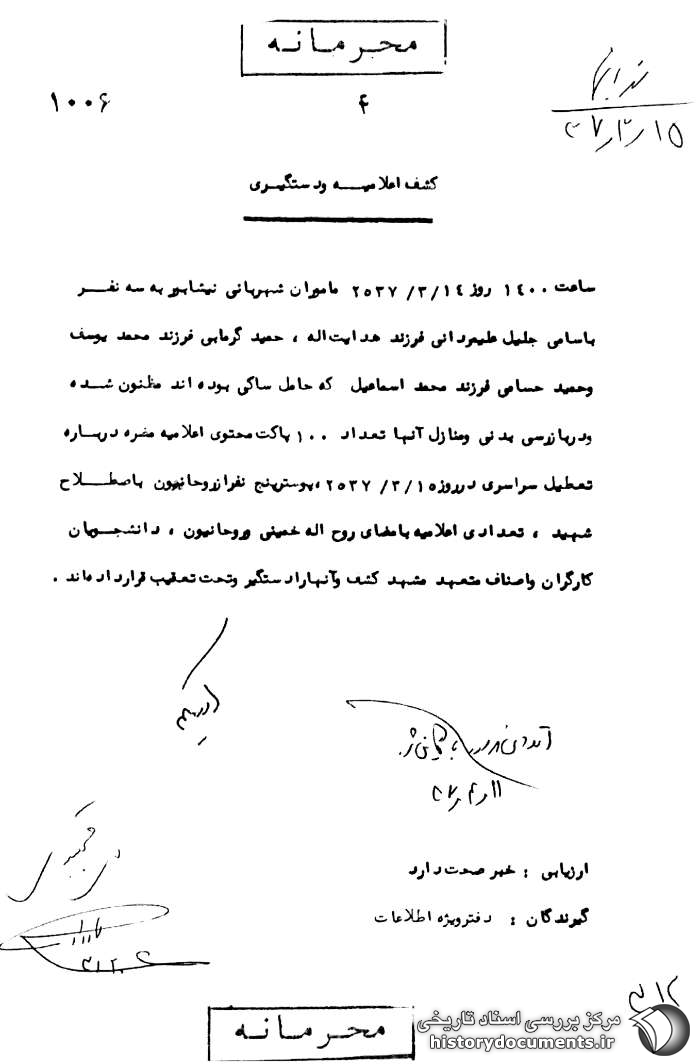 محرمانه
۱۰۰۶
۴
۱۵ر۳ر۳۷
کشف اعلامیه ودستگیری
ساعت ۱۴۰۰ روز ۲۵۳۷/۳/۱٤ ماموران شهربانی نیشابور به سه نفر
باسامی جلیل طیعردانی فرزند هدایت اله ، حمید گرمابی فرزند محمد یوسف
وحمید حسامی فرزند محمد اسماعیل که حامل ساکی بوده اند مظنون شده
ودربازرسی بدنی ومنازل آنها تعداد ۱۰۰ پاکت محتوی اعلامیه مضره درباره
تعطیل سراسری درروز۲۵۳۷/۳/۱۵ ،پوسترپنج نفرازروحانیون باصطلاح
شهید ، تعدادی اعلامیه بامضای روح اله خمینی وروحانیون ، دانشجویان
کارگران واصناف متعهد مشهد کشف وآنهارادستگیر وتحت تعقیب قرارداده‌اند .
۱۱ر۴ر۳۷
ارزیابی : خبر صحت دارد
گیرندگان : دفترویژه اطلاعات
۳۱۲
محرمانه
مرکز بررسی اسناد تاریخی
historydocuments.ir